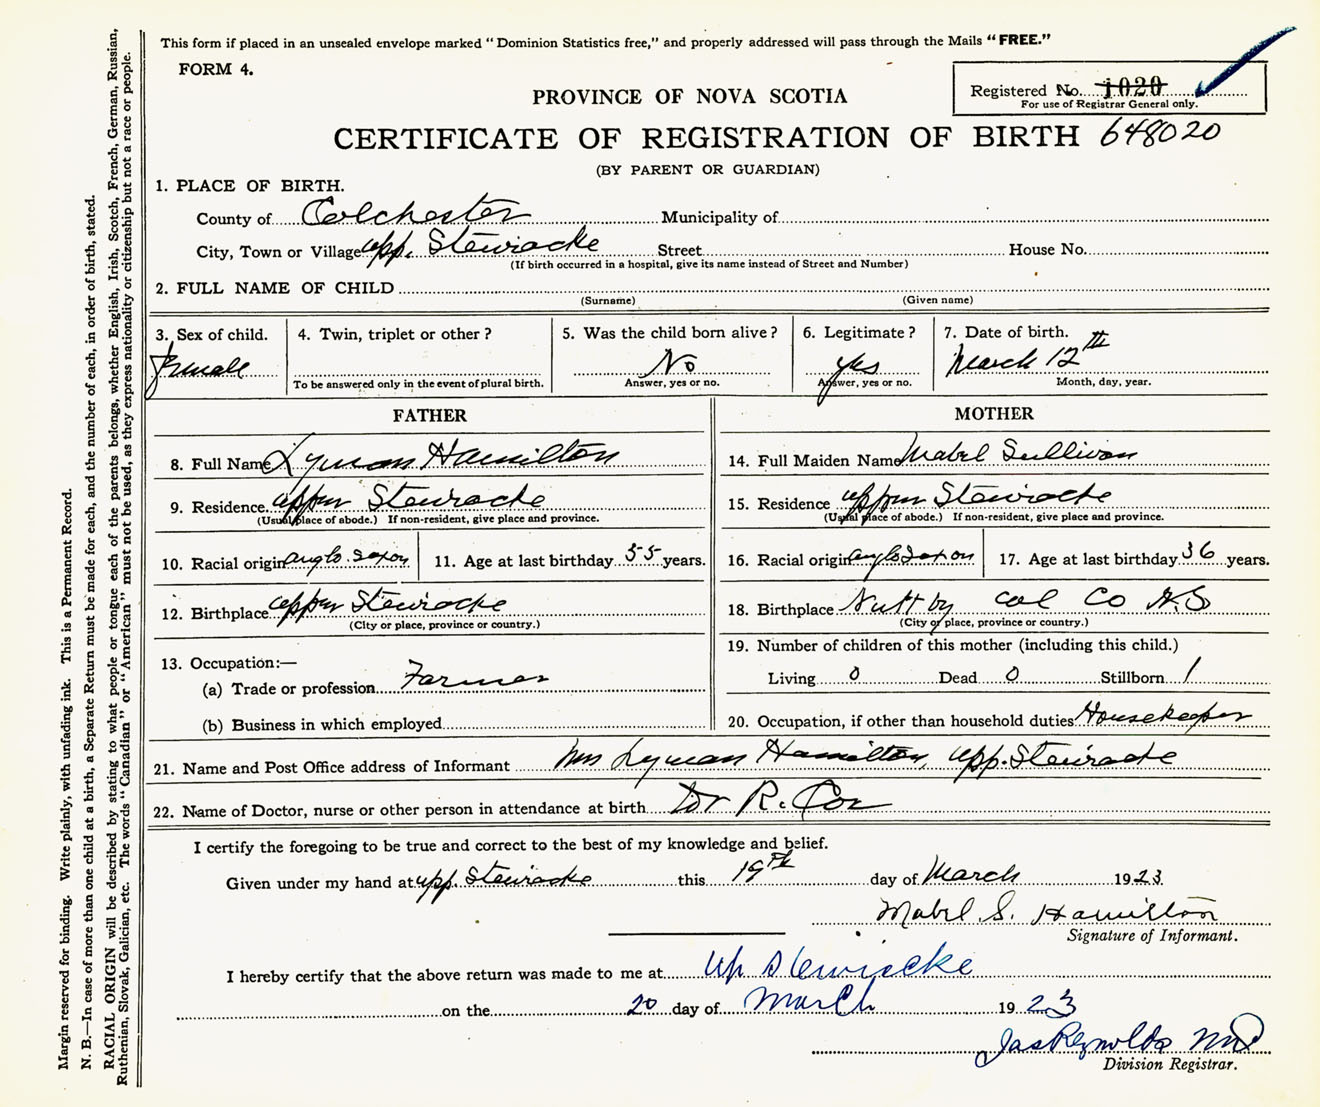 This form if placed in an unsealed envelope marked “Dominion Statistics free,” and properly addressed will pass through the Mails “FREE.”
FORM 4.
Registered No. 1020
For use of Registrar General only.
PROVINCE OF NOVA SCOTIA
CERTIFICATE OF REGISTRATION OF BIRTH 648020
(BY PARENT OR GUARDIAN)
1. PLACE OF BIRTH.
County of Colchester Municipality of
City, Town or Village upp. Stewiacke Street House No.
(If birth occurred in a hospital, give its name instead of Street and Number)
2. FULL NAME OF CHILD
(Surname) (Given name)
3. Sex of child. 4. Twin, triplet or other? 5. Was the child born alive? 6. Legitimate? 7. Date of birth.
female No yes March 12th
To be answered only in the event of plural birth. Answer, yes or no. Answer, yes or no. Month, day, year.
FATHER MOTHER
8. Full Name Lyman Hamilton 14. Full Maiden Name Mabel Sullivan
9. Residence upper Stewiacke 15. Residence upper Stewiacke
(Usual place of abode.) If non-resident, give place and province. (Usual place of abode.) If non-resident, give place and province.
10. Racial origin anglo. saxon 11. Age at last birthday 55 years. 16. Racial origin anglo saxon 17. Age at last birthday 36 years.
12. Birthplace upper Stewiacke 18. Birthplace Nuttby Col Co N.S
(City or place, province or country.) (City or place, province or country.)
13. Occupation:— 19. Number of children of this mother (including this child.)
(a) Trade or profession Farmer Living 0 Dead 0 Stillborn 1
(b) Business in which employed 20. Occupation, if other than household duties Housekeeper
21. Name and Post Office address of Informant Mrs Lyman Hamilton, upp. Stewiacke
22. Name of Doctor, nurse or other person in attendance at birth Dr R. Cox
I certify the foregoing to be true and correct to the best of my knowledge and belief.
Given under my hand at upp. Stewiacke this 19th day of March 1923
Mabel S. Hamilton
Signature of Informant.
I hereby certify that the above return was made to me at Up Stewiacke
on the 20 day of March 1923
Jas Reynolds MD
Division Registrar.
Margin reserved for binding. Write plainly, with unfading ink. This is a Permanent Record.
N. B.—In case of more than one child at a birth, a Separate Return must be made for each, and the number of each, in order of birth, stated.
RACIAL ORIGIN will be described by stating to what people or tongue each of the parents belongs, whether English, Irish, Scotch, French, German, Russian,
Ruthenian, Slovak, Galician, etc. The words “Canadian” or “American” must not be used, as they express nationality or citizenship but not a race or people.